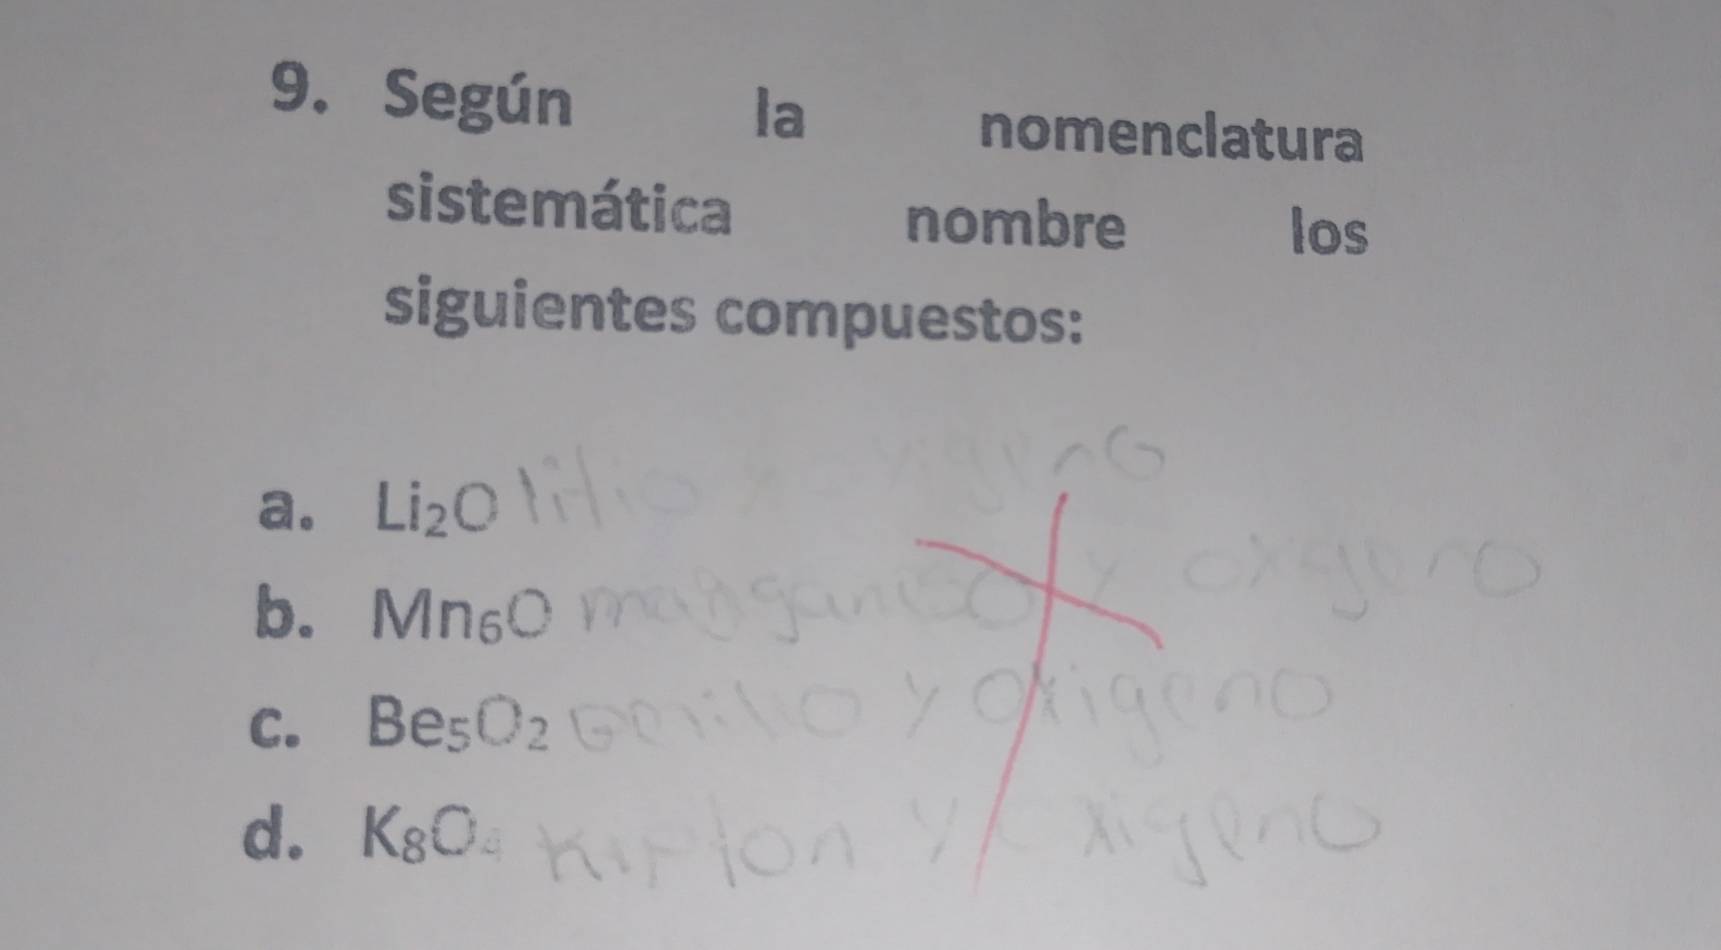 9. Según la nomenclatura
sistemática nombre los
siguientes compuestos:
a. Li₂O litio y oxigeno
b. Mn₆O manganiso y oxgeno
c. Be₅O₂ y oxigeno
d. K₈O₄ y oxigeno